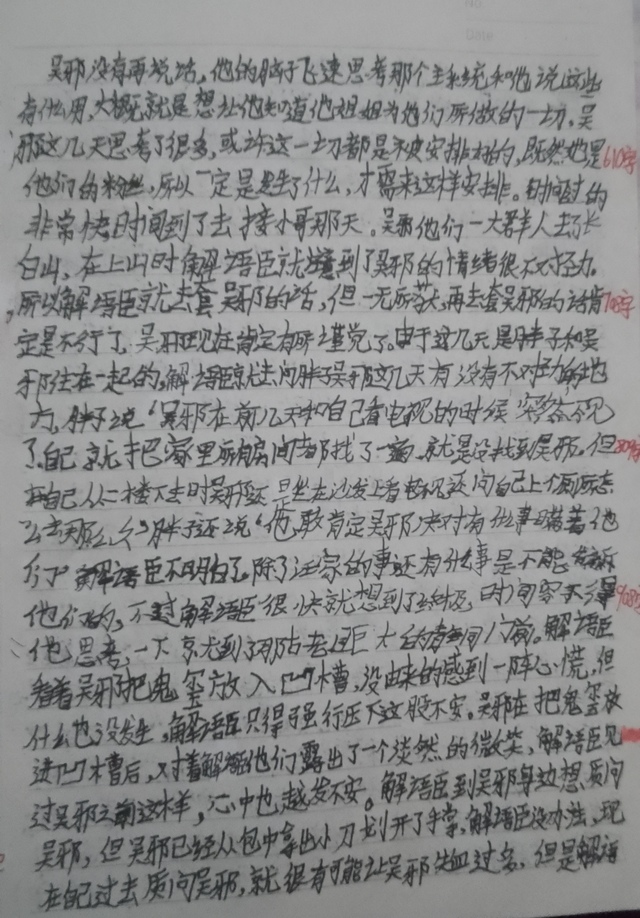 吴邪没有再说话,他的脑子飞速思考那个主系统和他说这些
有什么用,大概就是想让他知道他姐姐为他们所做的一切,吴
邪这几天思考了很多,或许这一切都是被安排好的,既然她是610字
他们的粉丝,所以一定是发生了什么,才需来这样安排。时间过的
非常快时间到了去接小哥那天。吴邪他们一大群人去了长
白山,在上山时解语臣就注意到了吴邪的情绪很不对劲。
所以解语臣就去套吴邪的话,但一无所获,再去套吴邪的话肯
定是不行了,吴邪现在肯定有所谨觉了。由于这几天是胖子和吴
邪住在一起的,解语臣就去问胖子吴邪这几天有没有不对劲的地
方,胖子说“吴邪在前几天和自己看电视的时候突然不见
了。自己就把家里所有房间都找了一遍,就是没找到吴邪。但
自己从二楼下去时吴邪还是坐在沙发上看电视还问自己上个厕所怎
么去那么久”胖子还说“他敢肯定吴邪绝对有什事瞒着他
们”解语臣不明白了。除了汪家的事还有什事是不能告诉
他们的,不过解语臣很快就想到了终极,时间容不得
他思考,一下就到了那古老且巨大的青铜门前。解语臣
看着吴邪把鬼玺放入凹槽,没由来的感到一阵心慌,但
什么也没发生,解语臣只得强行压下这股不安。吴邪在把鬼玺放
进凹槽后,对着解语臣他们露出了一个淡然的微笑,解语臣见
过吴邪之前这样,心中也越发不安。解语臣到吴邪身边想质问
吴邪,但吴邪已经从包中拿出小刀划开了手掌,解语臣没办法,现
在自己过去质问吴邪,就很有可能让吴邪失血过多,但是解语